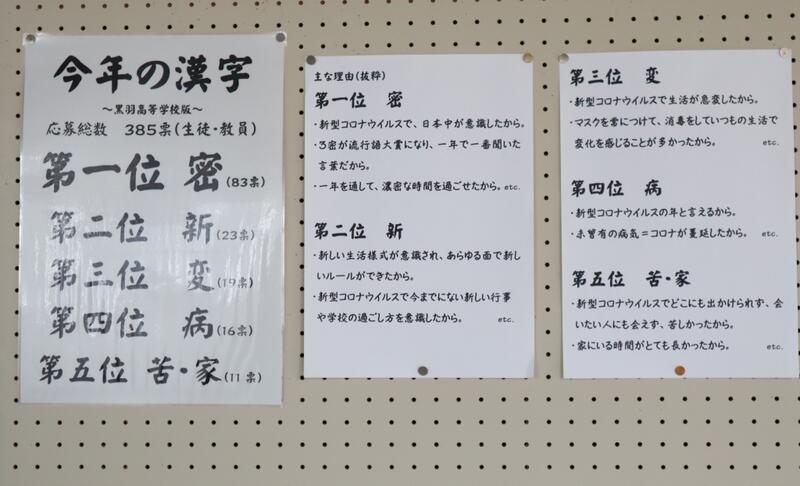 今年の漢字
～黒羽高等学校版～
応募総数　385票(生徒・教員)
第一位　密(83票)
第二位　新(23票)
第三位　変(19票)
第四位　病(16票)
第五位　苦・家(11票)
主な理由(抜粋)
第一位　密
・新型コロナウイルスで、日本中が意識したから。
・3密が流行語大賞になり、一年で一番聞いた
言葉だから。
・一年を通して、濃密な時間を過ごせたから。etc.
第二位　新
・新しい生活様式が意識され、あらゆる面で新し
いルールができたから。
・新型コロナウイルスで今までにない新しい行事
や学校の過ごし方を意識したから。　etc.
第三位　変
・新型コロナウイルスで生活が急変したから。
・マスクを常につけて、消毒をしていつもの生活で
変化を感じることが多かったから。　etc.
第四位　病
・新型コロナウイルスの年と言えるから。
・未曾有の病気＝コロナが蔓延したから。　etc.
第五位　苦・家
・新型コロナウイルスでどこにも出かけられず、会
いたい人にも会えず、苦しかったから。
・家にいる時間がとても長かったから。　etc.